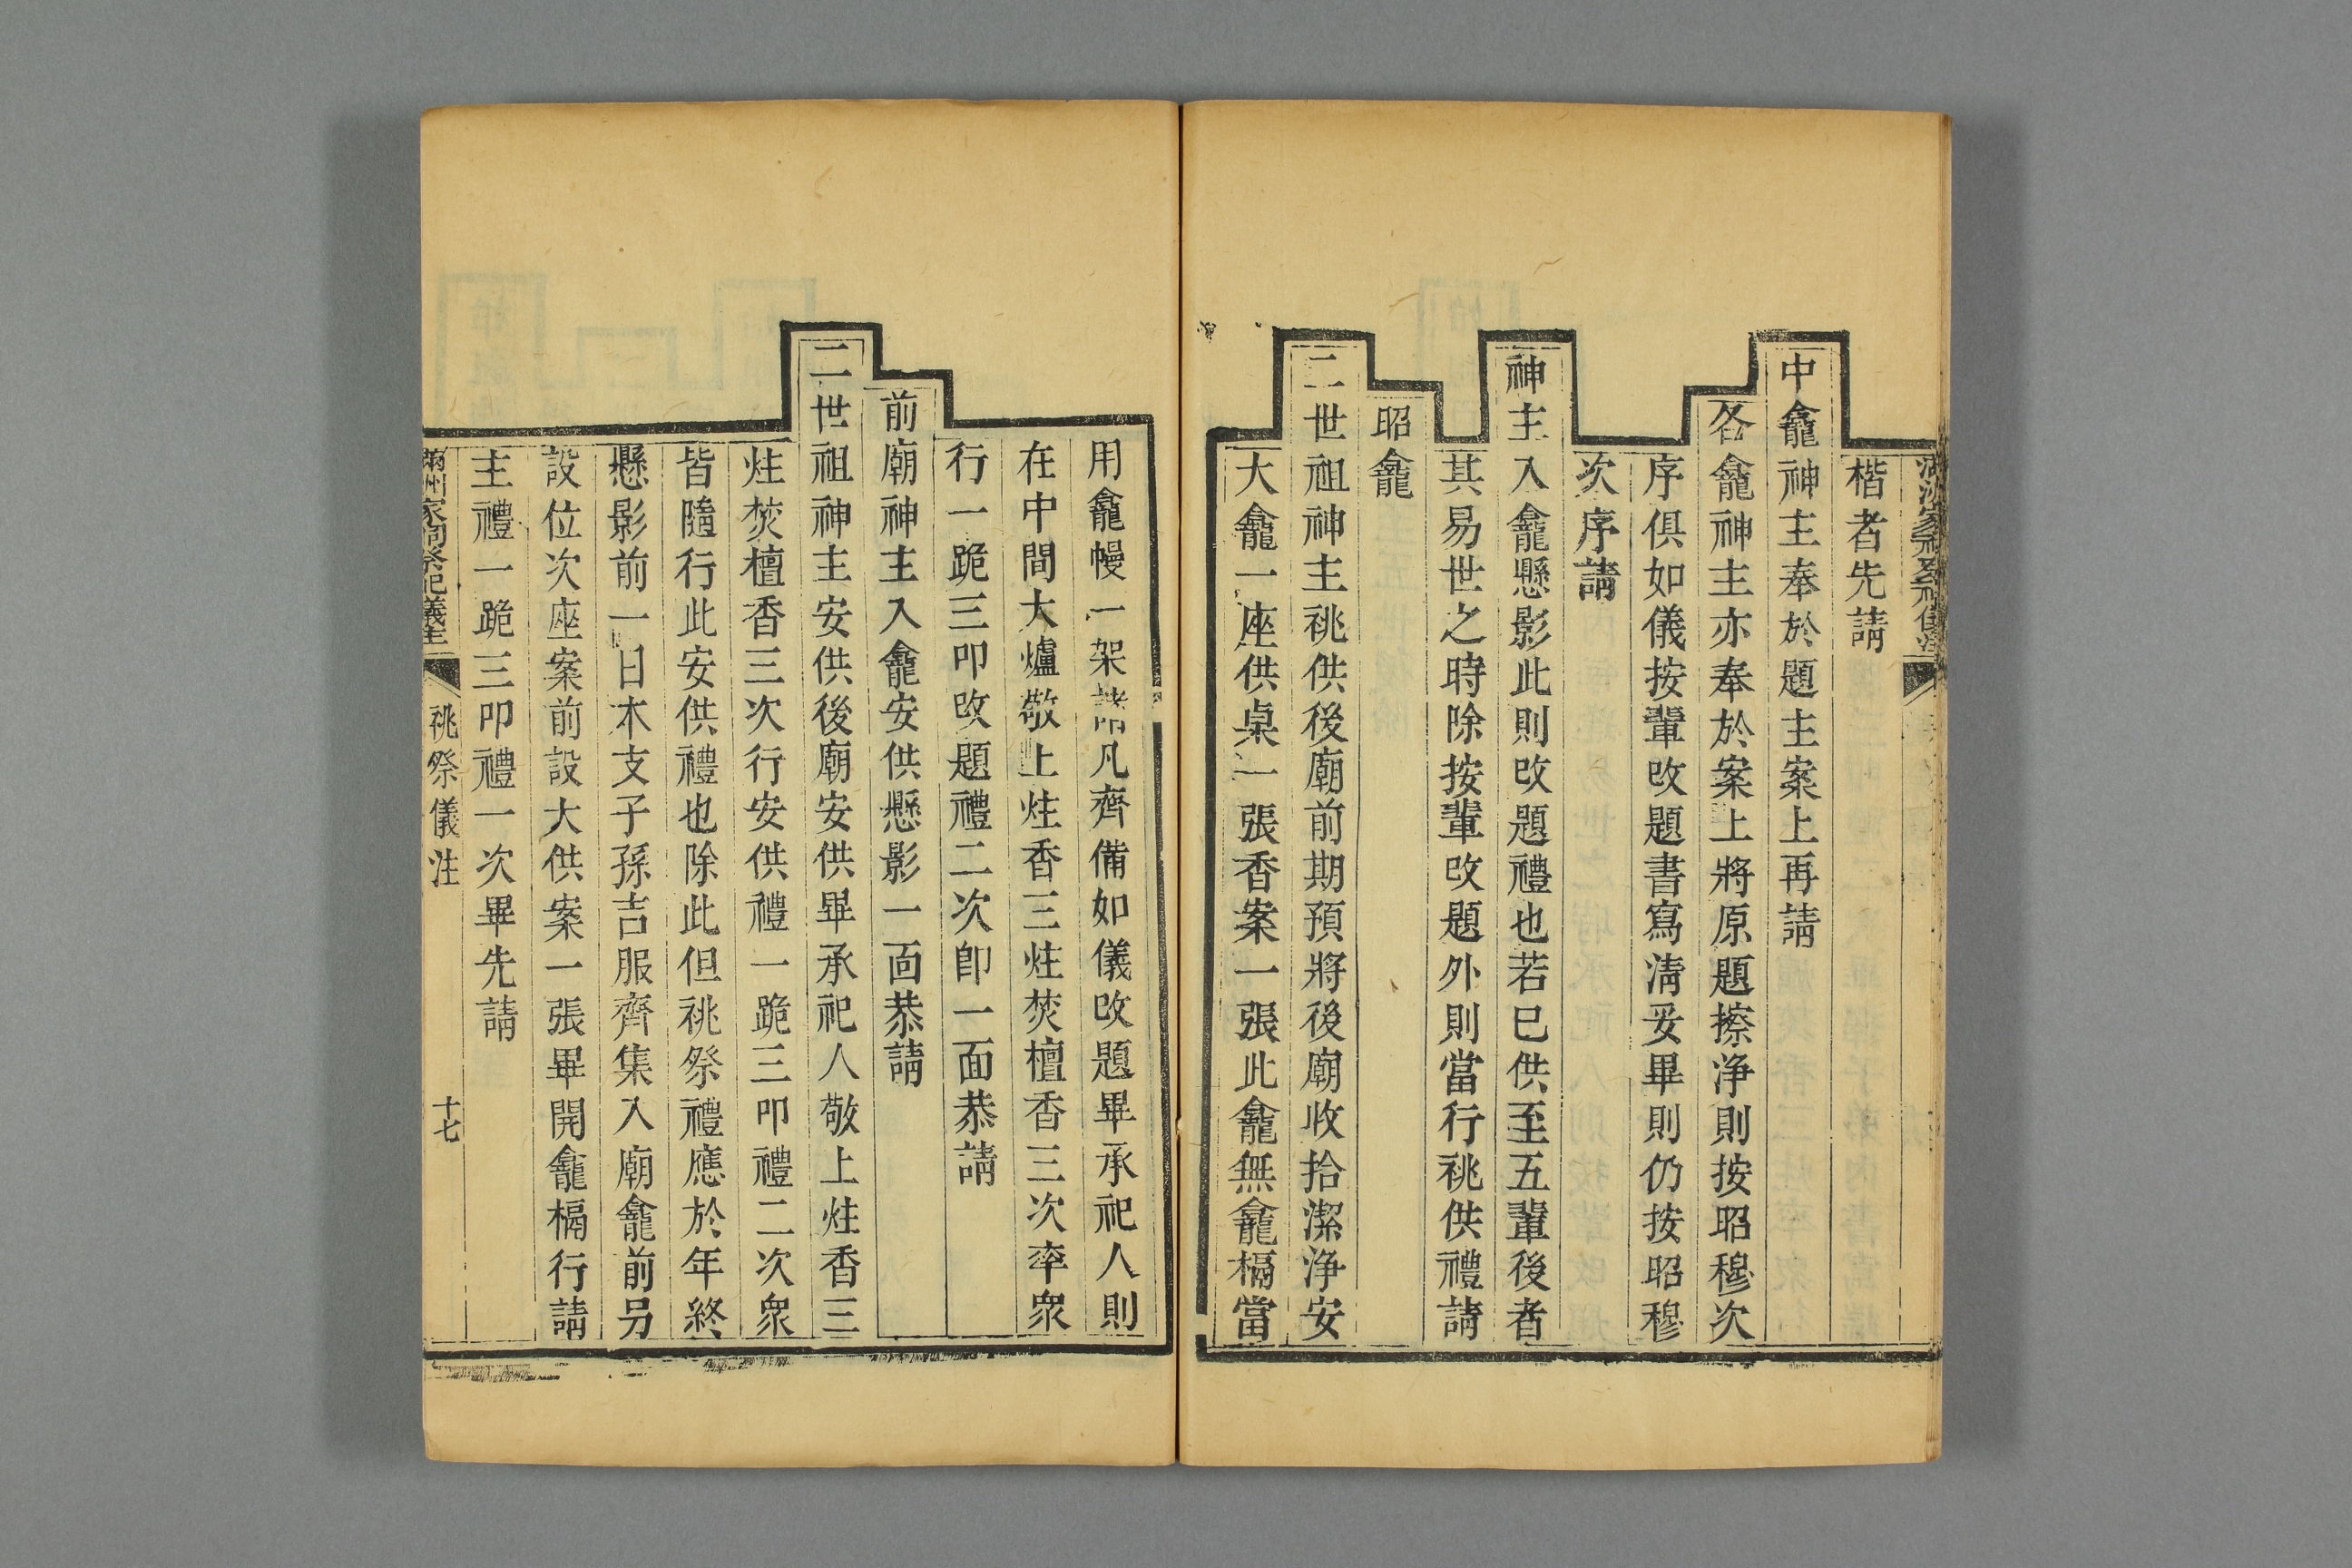 楷者先請
中龕神主奉於題主案上再請
各龕神主亦奉於案上將原題擦浄則按昭穆次
序俱如儀按輩改題書寫清妥畢則仍按昭穆
次序請
神主入龕懸影此則改題禮也若已供至五輩後者
其易世之時除按輩改題外則當行祧供禮請
昭龕
二世祖神主祧供後廟前期預將後廟收拾潔浄安
大龕一座供桌一張香案一張此龕無龕槅當
用龕幔一架諸凡齊備如儀改題畢承祀人則
在中間大爐敬上炷香三炷焚檀香三次率衆
行一跪三叩改題禮二次卽一面恭請
前廟神主入龕安供懸影一面恭請
二世祖神主安供後廟安供畢承祀人敬上炷香三
炷焚檀香三次行安供禮一跪三叩禮二次衆
皆隨行此安供禮也除此但祧祭禮應於年終
懸影前一日本支子孫吉服齊集入廟龕前另
設位次座案前設大供案一張畢開龕槅行請
主禮一跪三叩禮一次畢先請
滿洲家祠祭祀儀注 祧祭儀注 十七